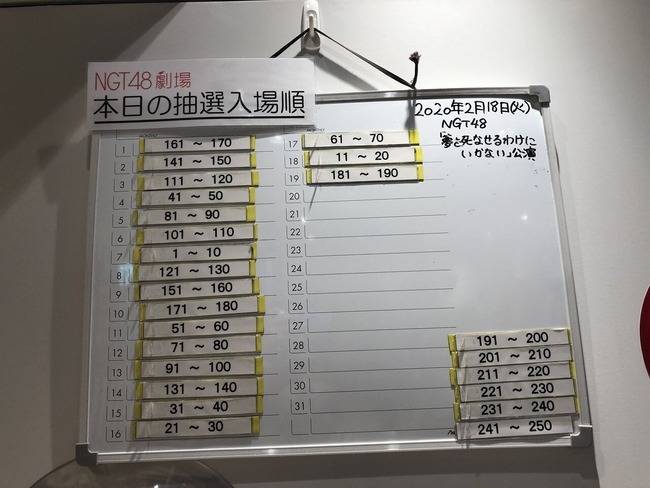 NGT48 劇場
本日の抽選入場順
2020年2月18日(火)
NGT48
「夢を死なせるわけに
いかない」公演
1 161 ~ 170
2 141 ~ 150
3 111 ~ 120
4 41 ~ 50
5 81 ~ 90
6 101 ~ 110
7 1 ~ 10
8 121 ~ 130
9 151 ~ 160
10 171 ~ 180
11 51 ~ 60
12 71 ~ 80
13 91 ~ 100
14 131 ~ 140
15 31 ~ 40
16 21 ~ 30
17 61 ~ 70
18 11 ~ 20
19 181 ~ 190
20
21
22
23
24
25
26
27
28
29
30
31
191 ~ 200
201 ~ 210
211 ~ 220
221 ~ 230
231 ~ 240
241 ~ 250